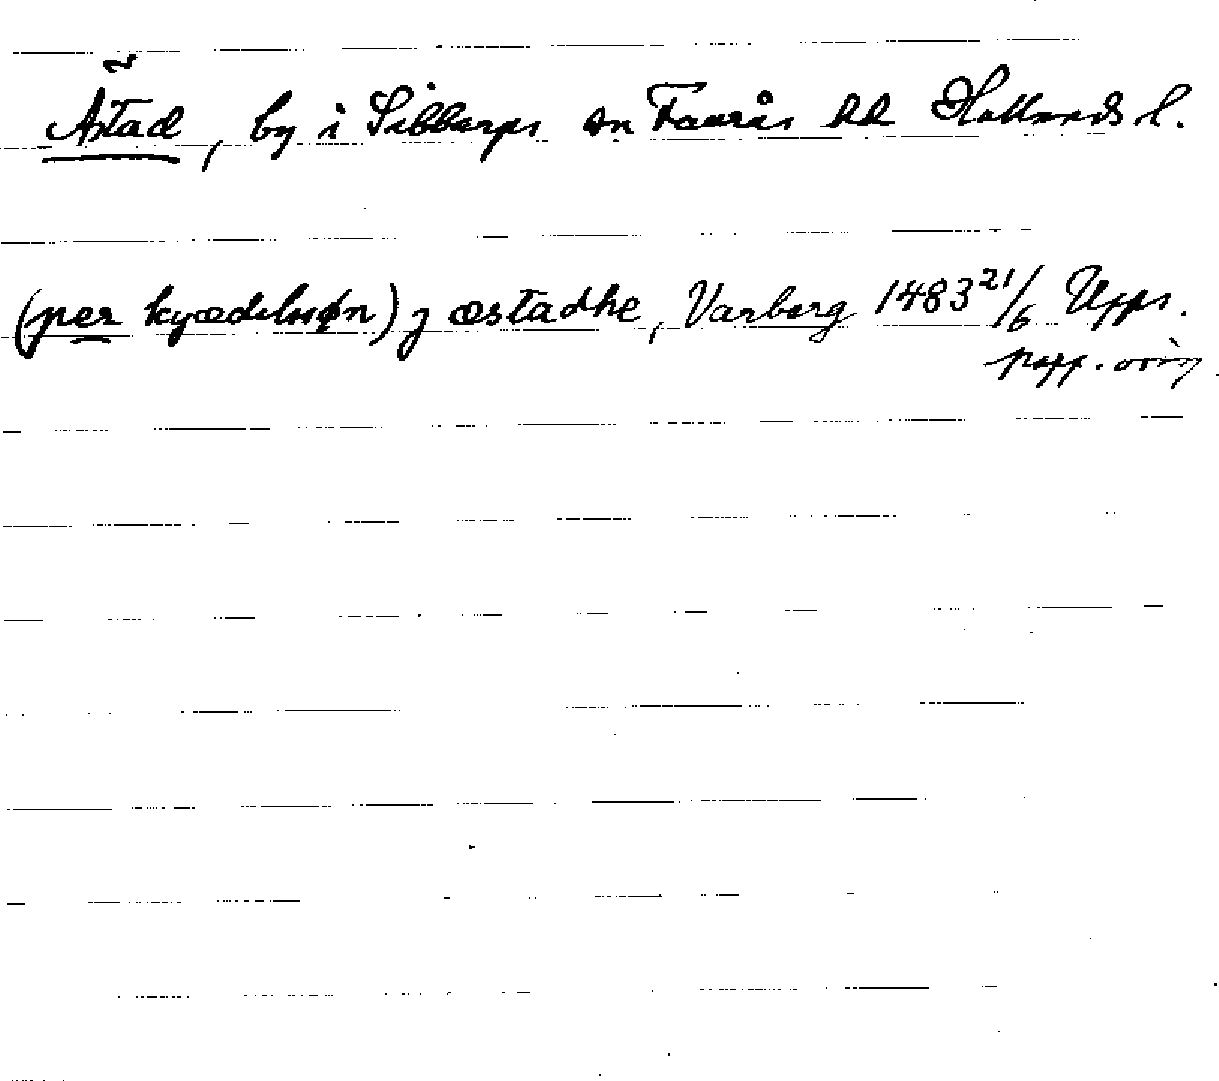 Ästad, by i Sibbarps sn Faurås hd Hallands l.
(per kyædelssøn) j æstadhe, Varberg 1483 21/6 Upps.
papp. orig